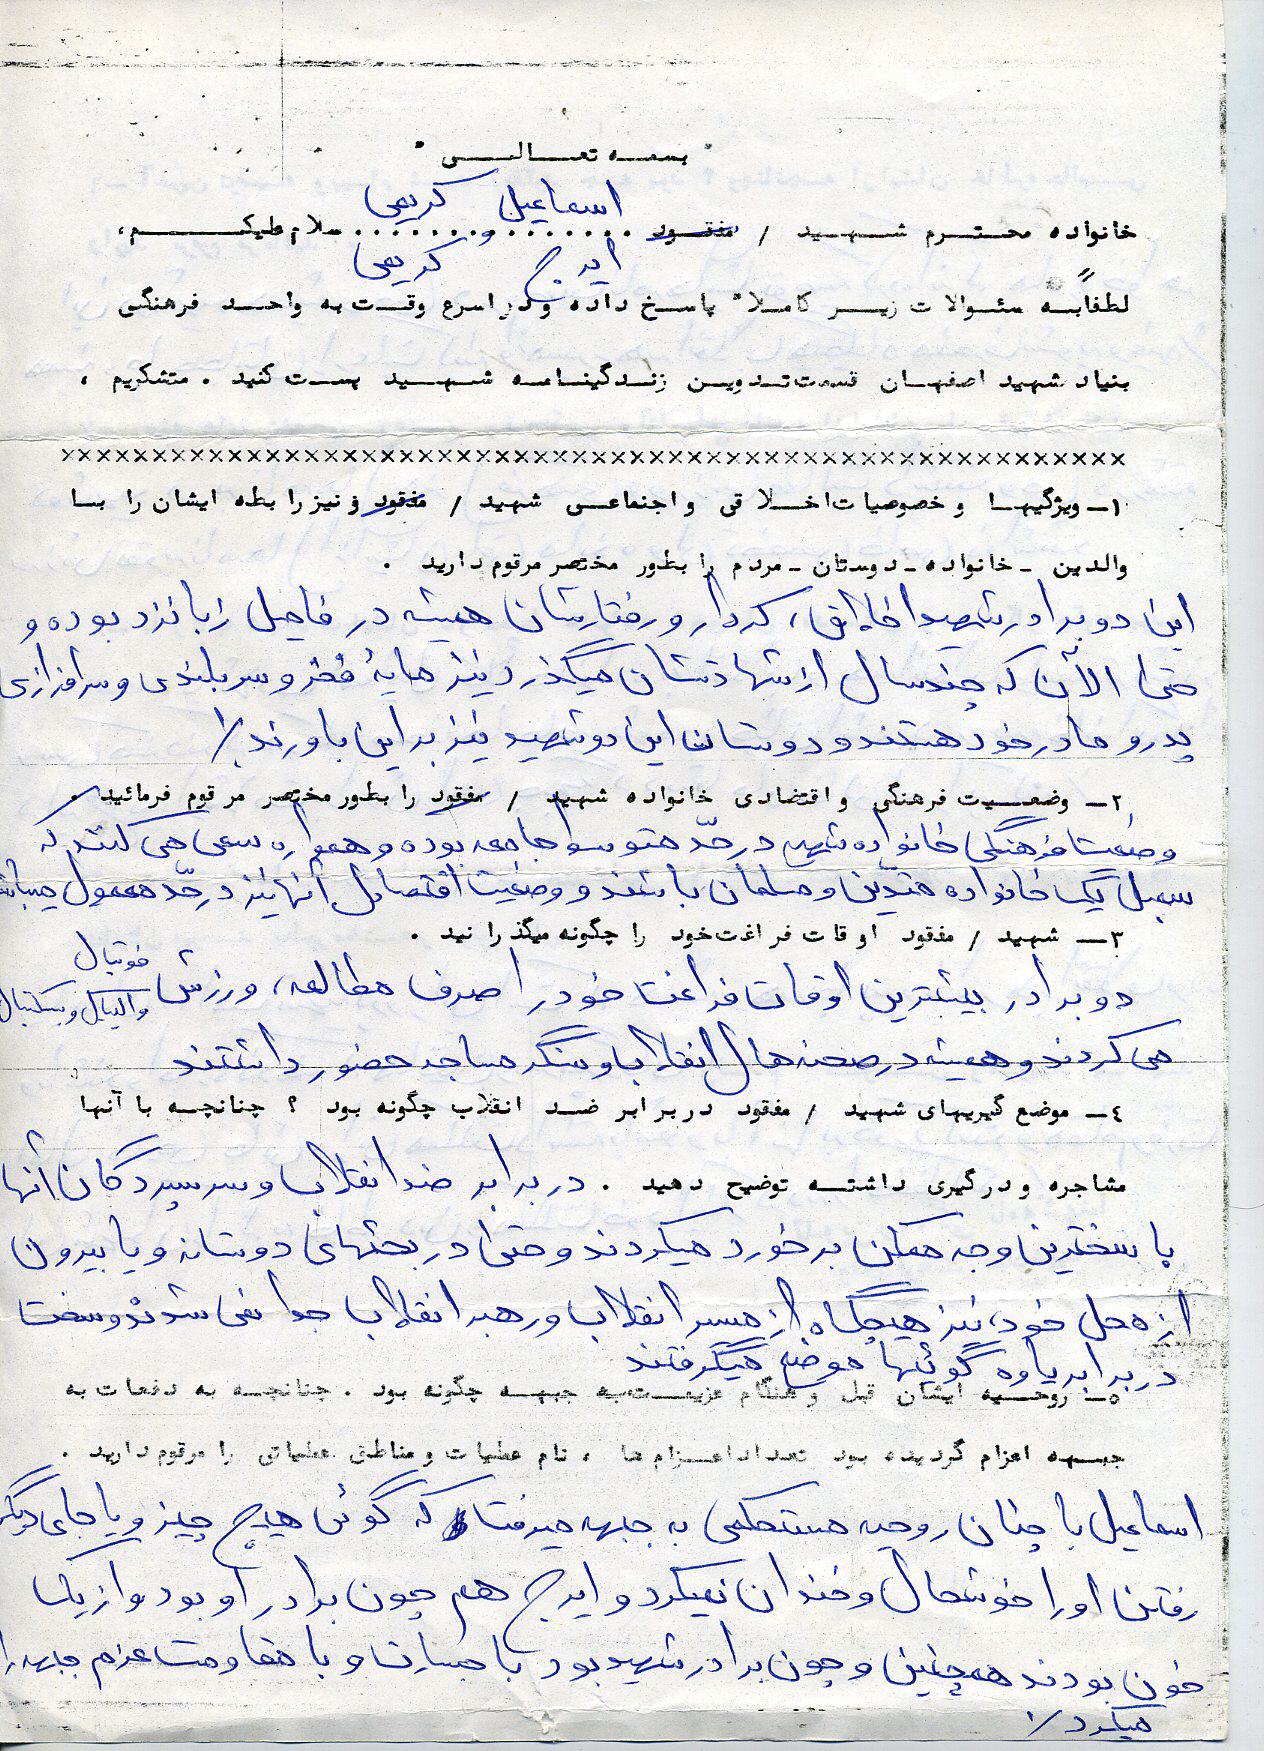 " بسمه تعالی "
اسماعیل کریمی
خانواده محترم شهید / مفقود ....... و ....... سلام علیکم،
ایرج کریمی
لطفاً به سئوالات زیر کاملا" پاسخ داده و در اسرع وقت به واحد فرهنگی
بنیاد شهید اصفهان قسمت تدوین زندگینامه شهید پست کنید . متشکریم .
××××××××××××××××××××××××××××××××××××××××××××××××××××××××××
۱ـ ویژگیها و خصوصیات اخلاقی و اجتماعی شهید / مفقود و نیز رابطه ایشان را با
والدین ـ خانواده ـ دوستان ـ مردم را بطور مختصر مرقوم دارید .
این دو برادر شهید اخلاق، کردار و رفتارشان همیشه در فامیل زبانزد بوده و
حتی الآن که چند سال از شهادتشان میگذرد نیز مایهٔ فخر و سربلندی و سرافرازی
پدر و مادر خود هستند و دوستان این دو شهید نیز بر این باورند./
۲ـ وضعیت فرهنگی و اقتضادی خانواده شهید / مفقود را بطور مختصر مرقوم فرمائید .
وضعیت فرهنگی خانواده شهید در حدّ متوسط جامعه بوده و همواره سعی می کنند که
سمبل یک خانواده متدّین و مسلمان باشند و وضعیت اقتصادی آنها نیز در حدّ معمول میباشد
۳ـ شهید / مفقود اوقات فراغت خود را چگونه میگذرانید .
دو برادر بیشترین اوقات فراغت خود را صرف مطالعه، ورزش فوتبال
والیبال و بسکتبال
می کردند و همیشه در صحنه های انقلاب و سنگر مساجد حضور داشتند
٤ـ موضع گیریهای شهید / مفقود در برابر ضد انقلاب چگونه بود ؟ چنانچه با آنها
مشاجره و درگیری داشته توضیح دهید . در برابر ضد انقلاب و سرسپردگان آنها
با سختترین وجه ممکن برخورد میکردند و حتی در بحثهای دوستانه و یا بیرون
از محل خود نیز هیچگاه از مسیر انقلاب و رهبر انقلاب جدا نمی شدند و سخت
در برابر یاوه گوئیها موضع میگرفتند
۵ـ روحیه ایشان قبل و هنگام عزیمت به جبهه چگونه بود . چنانچه به دفعات به
جبهه اعزام گردیده بود تعداد اعزام ها ، نام عملیات و مناطق عملیاتی را مرقوم دارید .
اسماعیل با چنان روحیه مستحکمی به جبهه میرفت که گوئی هیچ چیز و یا جای دیگر
رفتن او را خوشحال و خندان نمیکرد و ایرج هم چون برادر او بود و از یک
خون بودند همچنین و چون برادر شهید بود با جسارت و با مقاومت عزم جبهه را
میکرد./